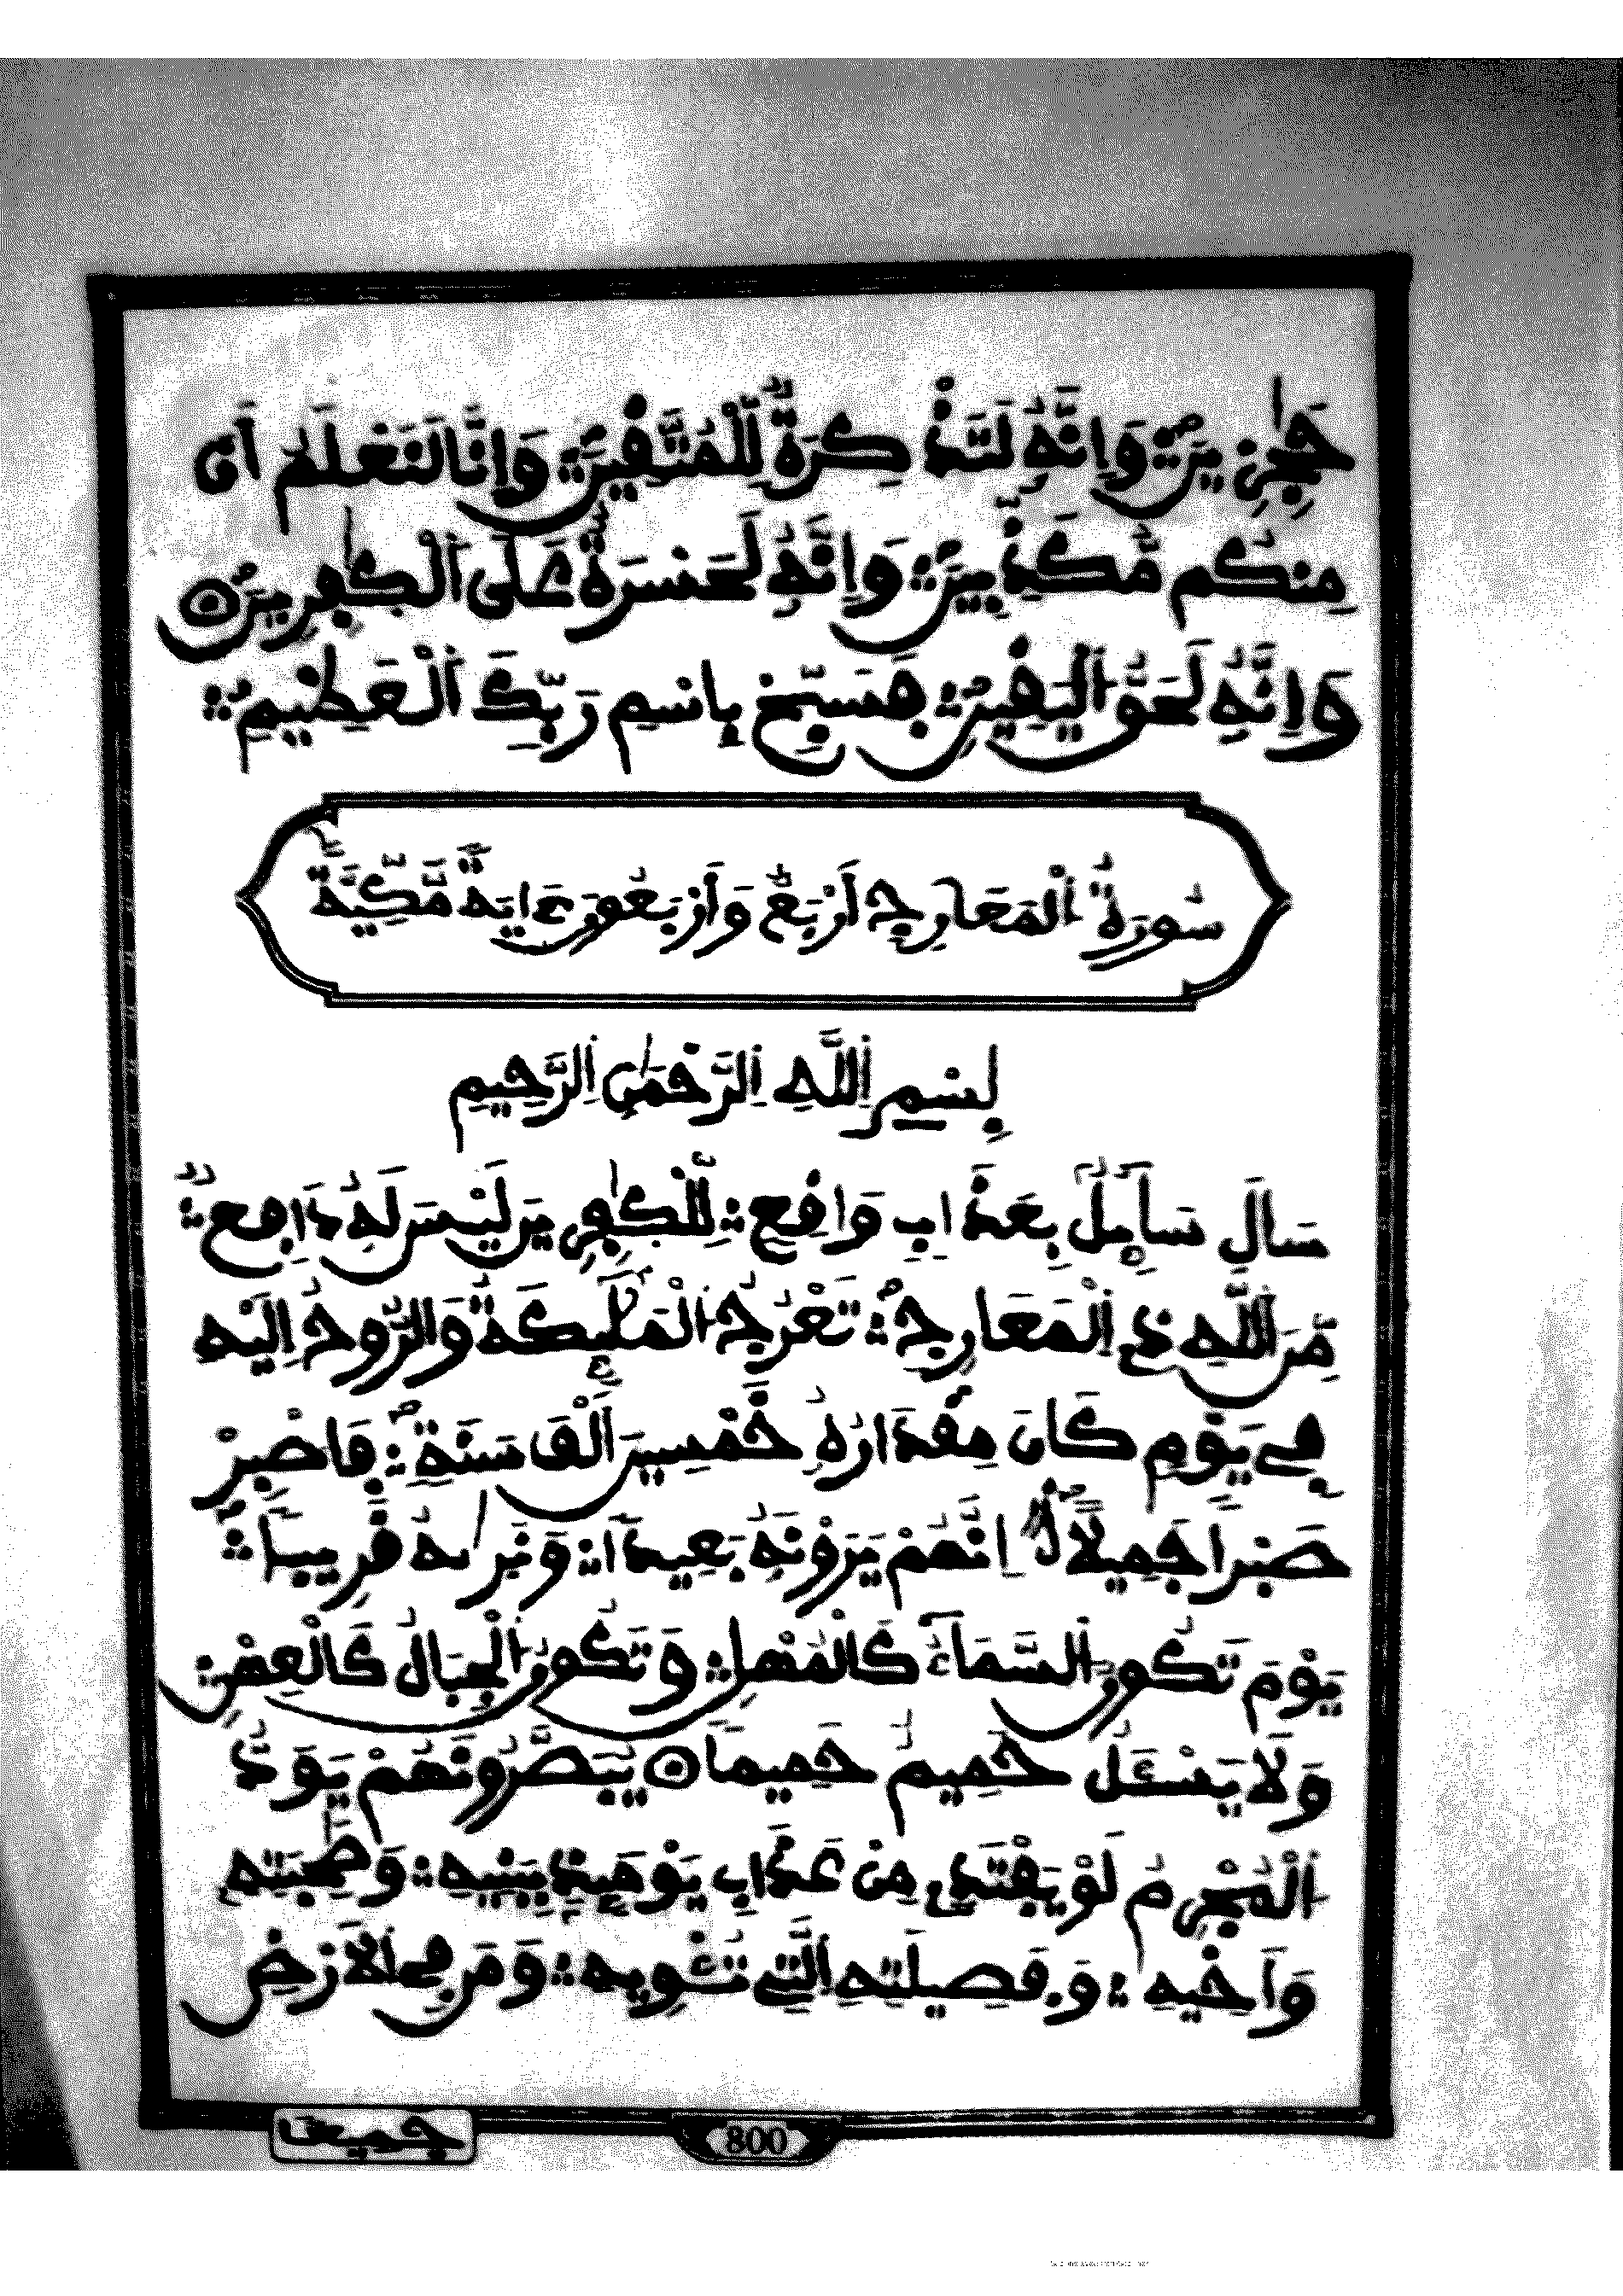 حَٰجِزِينَ وَإِنَّهُۥ لَتَذْكِرَةٌ لِّلْمُتَّقِينَ وَإِنَّا لَنَعْلَمُ أَنَّ
مِنكُم مُّكَذِّبِينَ وَإِنَّهُۥ لَحَسْرَةٌ عَلَى ٱلْكَٰفِرِينَ
وَإِنَّهُۥ لَحَقُّ ٱلْيَقِينِ فَسَبِّحْ بِاسْمِ رَبِّكَ ٱلْعَظِيمِ
سُورَةُ ٱلْمَعَارِجِ أَرْبَعٌ وَأَرْبَعُونَ ءَايَةً مَّكِّيَّةٌ
بِسْمِ ٱللَّهِ ٱلرَّحْمَٰنِ ٱلرَّحِيمِ
سَالَ سَآئِلٌ بِعَذَابٍ وَاقِعٍ لِّلْكَٰفِرِينَ لَيْسَ لَهُۥ دَافِعٌ
مِّنَ ٱللَّهِ ذِي ٱلْمَعَارِجِ تَعْرُجُ ٱلْمَلَٰٓئِكَةُ وَالرُّوحُ إِلَيْهِ
فِي يَوْمٍ كَانَ مِقْدَارُهُۥ خَمْسِينَ أَلْفَ سَنَةٍ فَاصْبِرْ
صَبْراً جَمِيلاً إِنَّهُمْ يَرَوْنَهُۥ بَعِيداً وَنَرَىٰهُ قَرِيباً
يَوْمَ تَكُونُ ٱلسَّمَآءُ كَالْمُهْلِ وَتَكُونُ ٱلْجِبَالُ كَالْعِهْنِ
وَلَا يَسْـَٔلُ حَمِيمٌ حَمِيماً يُبَصَّرُونَهُمْ يَوَدُّ
ٱلْمُجْرِمُ لَوْ يَفْتَدِي مِنْ عَذَابِ يَوْمَئِذٍ بِبَنِيهِ وَصَٰحِبَتِهِ
وَأَخِيهِ وَفَصِيلَتِهِ ٱلَّتِي تُـْٔوِيهِ وَمَن فِي ٱلْأَرْضِ
جميعا
800